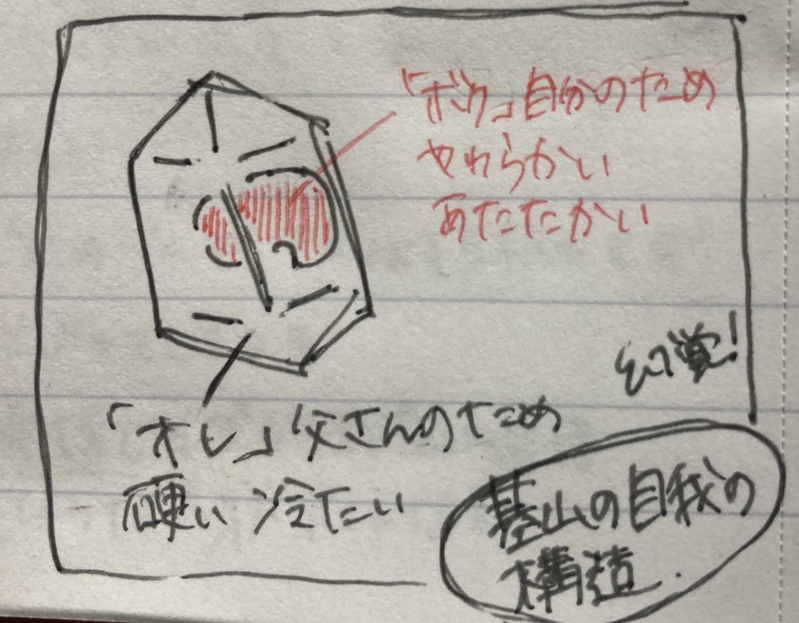 「ボク」自分のため
やわらかい
あたたかい
幻覚!
「オレ」父さんのため
硬い 冷たい
基山の自我の
構造.